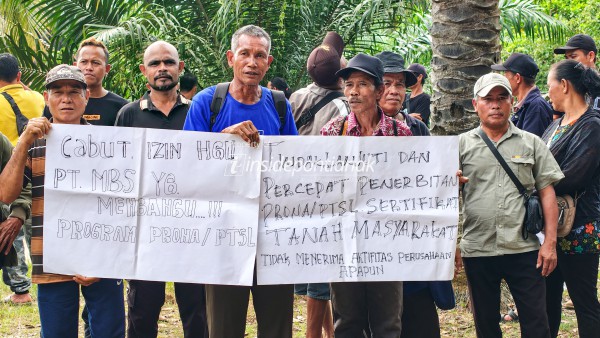 CABUT. IZIN HGU
PT. MBS Yg
MENGANGU...!!!
PROGRAM PRONA/PTSL
TINDAK LANJUTI DAN
PERCEPAT PENERBITAN
PRONA/PTSL SERTIFIKAT
TANAH MASYARAKAT
TIDAK MENERIMA AKTIFITAS PERUSAHAAN
APAPUN
insidepontianak